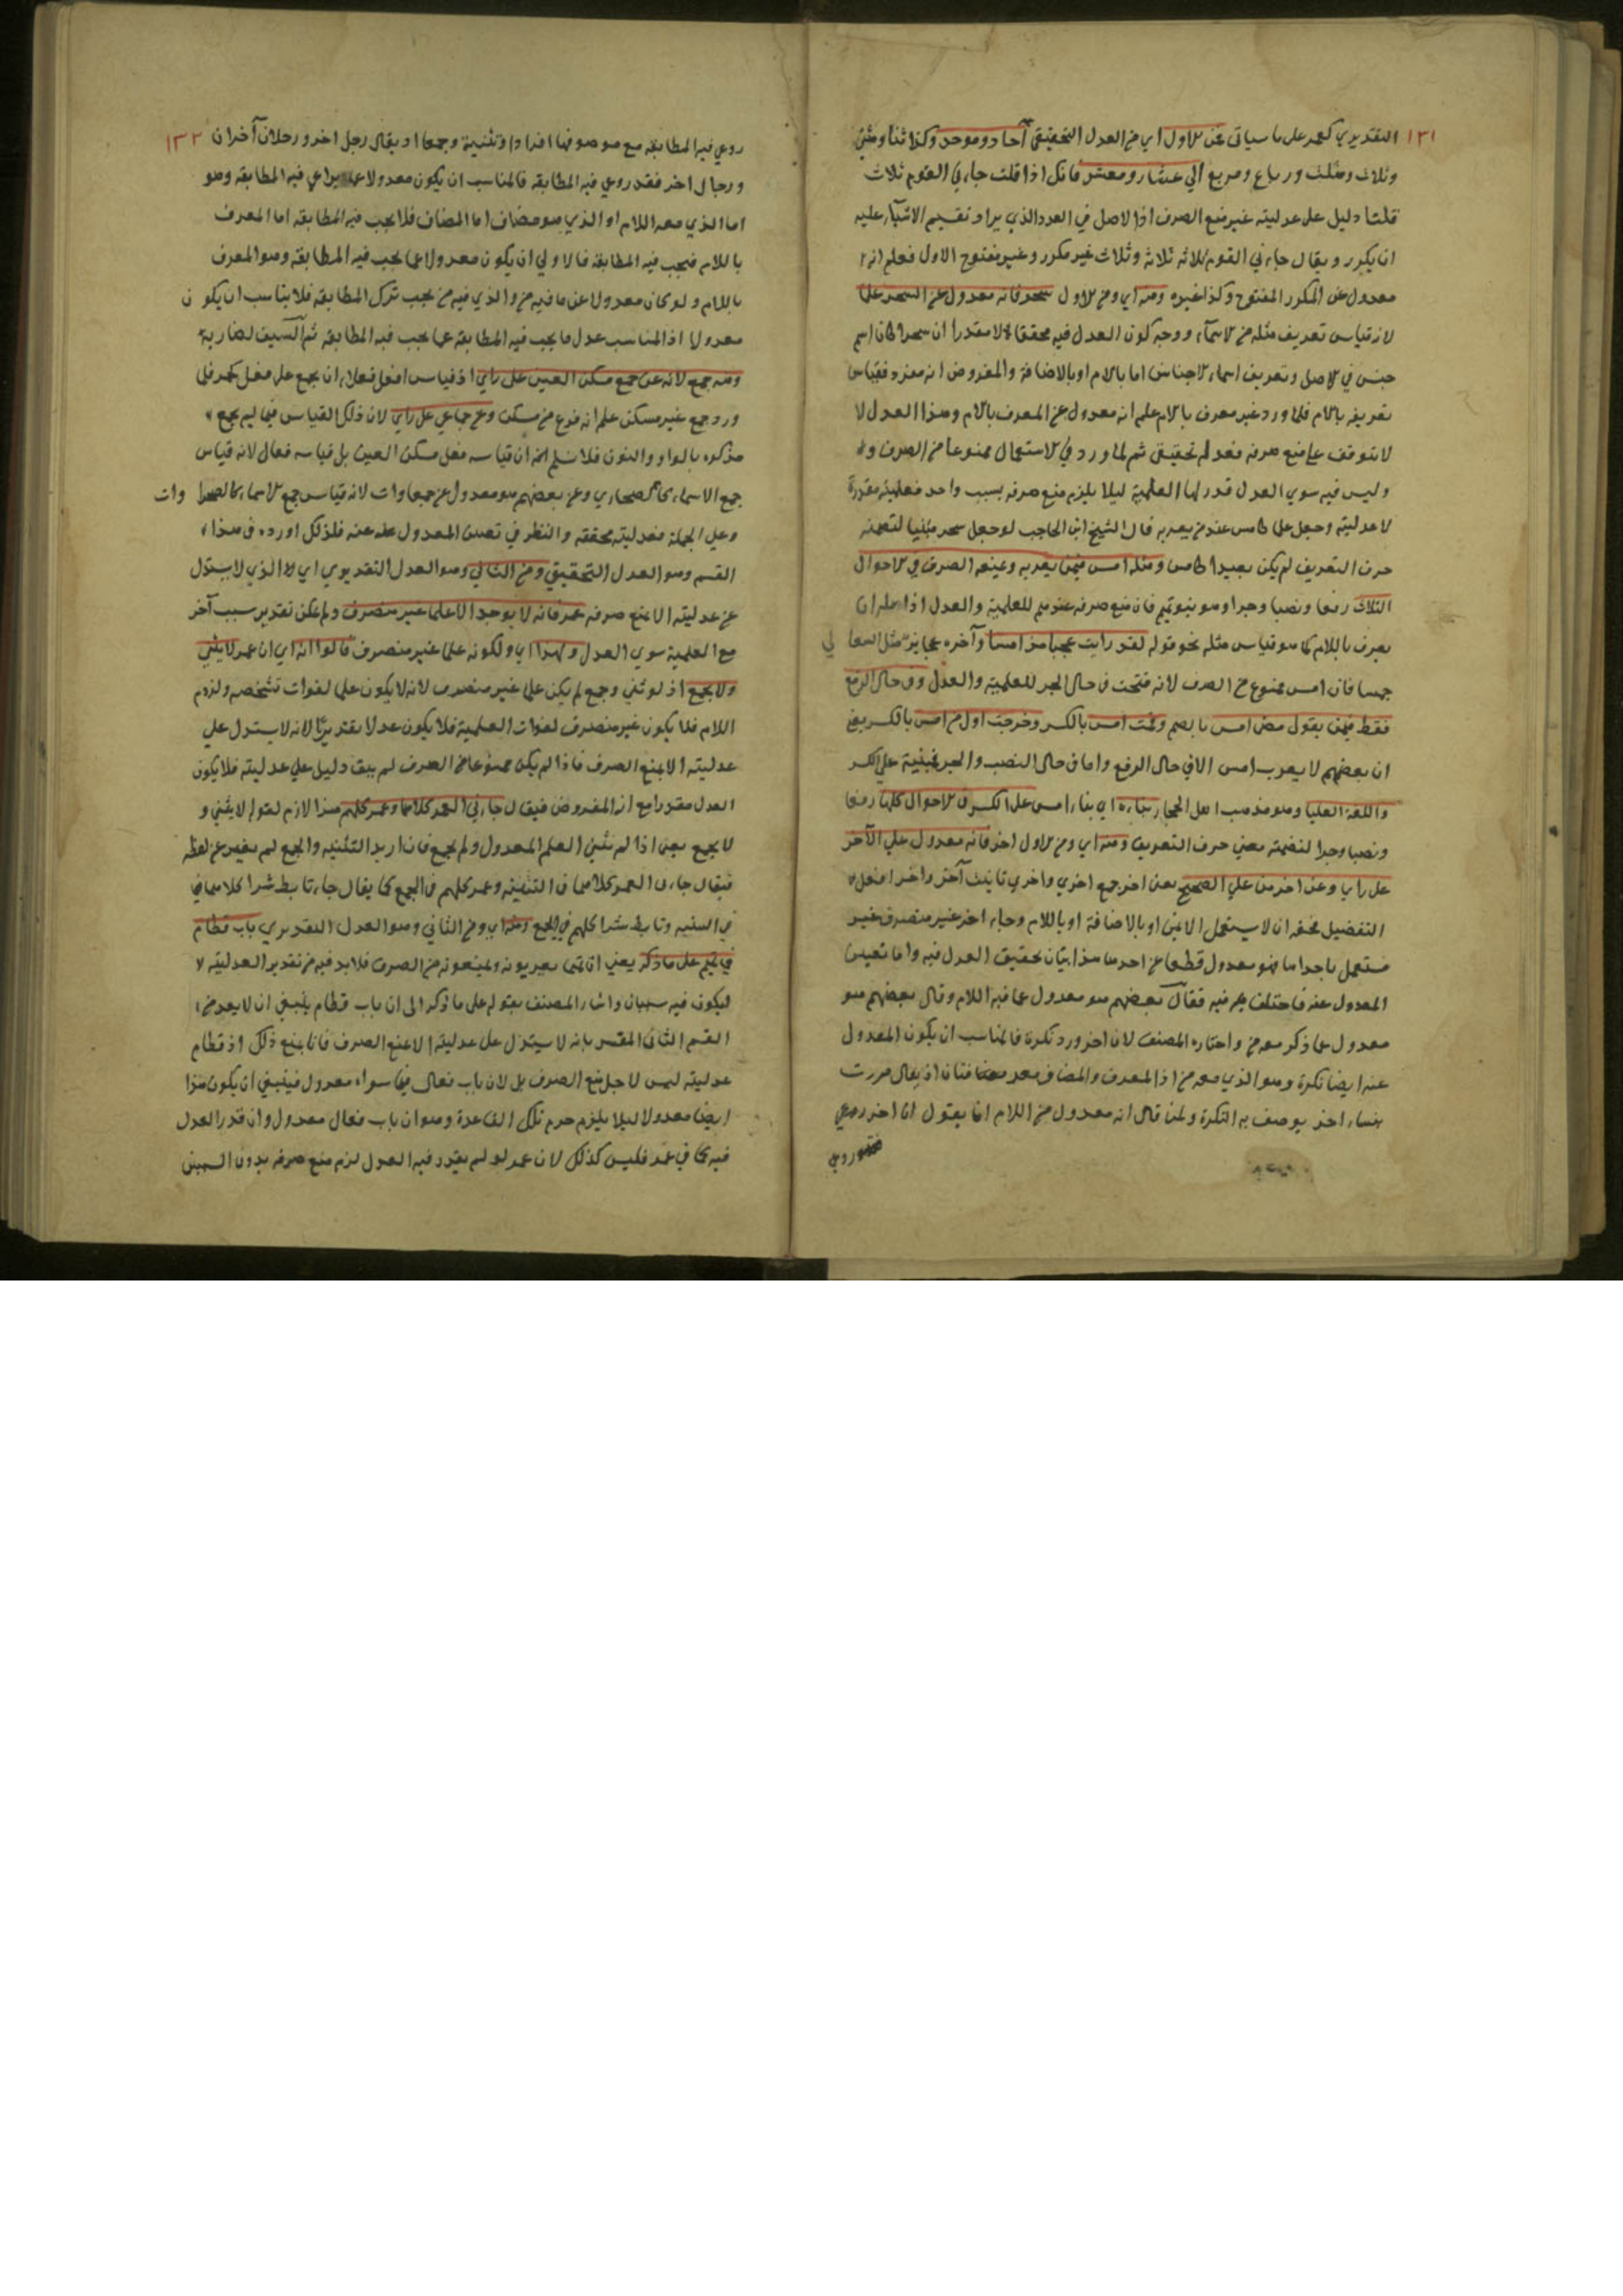 ١٣١ التقديري كعمر على ما سياتي فمن الاول اي من العدل التحقيقي آحاد وموحد وكذا ثنا ومثنى
وثلاث ومثلث ورباع ومربع الي عشار ومعشر فانك اذا قلت جاءني القوم ثلاث
قلنا دليل على عدليته غير منع الصرف اذ الاصل في العدد الذي يراد تقسيم الاشياء عليه
ان يكرر ويقال جاءني القوم ثلاثه ثلاثة وثلاث غير مكرر وغير مفتوح الاول فعلم انه
معدول عن المكرر المفتوح وكذا غيره ومنه اي ومن الاول سحر فانه معدول عن السحر علما
لان قياس تعريف مثله من الاسماء ووجه كون العدل فيه محققا لا مقدرا ان سحرا كان اسم
جنس في الاصل وتعريف اسماء الاجناس اما بالام او بالاضافة والمفروض انه مفرد فقياس
تعريفه بالام فلما ورد غير معرف بالام علم انه معدول عن المعرف بالام وهذا العدل لا
لا يتوقف على منع صرفه فعدله تحقيقي ثم لما ورد في الاستعمال ممنوعا من الصرف
وليس فيه سوي العدل قدر لها العلمية ليلا يلزم منع صرفه بسبب واحد فعلميته مقدرة
لا عدليته وجعل علما كامس عند من يعربه قال الشيخ ابن الحاجب لو جعل سحر مبنيا لتضمنه
حرف التعريف لم يكن بعيدا كامس ومثله امس فيمن يعربه ويمنعه الصرف في الاحوال
الثلاث رفعا ونصبا وجرا وهو بنو تميم فان منع صرفه عندهم للعلمية والعدل اذا صله ان
يعرف باللام كما هو قياس مثله نحو قوله لقد رايت عجبا مذ امسا وآخره عجايزا مثل السعالي
خمسا فان امس ممنوع من الصرف لانه فتحت في حال الجر للعلمية والعدل وفي حال الرفع
فقط فيمن يقول مضى امس بالضم وقمت امس بالكسر وخرجت اول من امس بالكسر يعني
ان بعضهم لا يعرب امس الا في حال الرفع واما في حال النصب والجر فمبنية على الكسر
واللغة العليا وهو مذهب اهل الحجاز بناءه اي بناء امس على الكسر في الاحوال كلها رفعا
ونصبا وجرا لتضمنه معني حرف التعريف ومنه اي ومن الاول اخر فانه معدول علي الآخر
على راي وعن اخر من علي الصحيح يعني اخر جمع اخري واخري تانيث آخر واخر افعل
التفضيل فحقه ان لا يستعمل الا بمن او بالاضافة او باللام وجاء اخر غير منصرف غير
مستعمل باحداها فهو معدول قطعا عن احدها هذا بيان تحقيق العدل فيه واما تعيين
المعدول عنه فاختلف فيه فقال بعضهم هو معدول عما فيه اللام وقال بعضهم هو
معدول عما ذكر معه من واختاره المصنف لان اخر ورد نكرة فالمناسب ان يكون المعدول
عنه ايضا نكرة وهو الذي معه من اذ المعرف والمضاف معرفتان اذ يقال مررت
بنساء اخر يوصف به النكرة ولمن قال انه معدول من اللام ان يقول ان اخر روعي
روعي فيه المطابقه مع موصوفها افرادا وتثنية وجمعا اذ يقال رجل اخر ورجلان آخران ١٣٢
ورجال اخر فقد روعي فيه المطابقه فالمناسب ان يكون معدولا عما يراعي فيه المطابقه وهو
اما الذي معه اللام او الذي هو مضاف اما المضاف فلا يجب فيه المطابقه اما المعرف
باللام فيجب فيه المطابقة فالاولي ان يكون معدولا عما يجب فيه المطابقه وهو المعرف
باللام ولو كان معدولا عن ما فيه من والذي فيه من يجب ترك المطابقه فلا يناسب ان يكون
معدولا اذ المناسب عدل ما يجب فيه المطابقة عما يجب فيه المطابقه
ومنه جمع لانه عن جمع مسكن العين على راي اذ قياس افعل فعلاء ان يجمع على فعل كحمر فلما
ورد جمع غير مسكن علم انه فرع من مسكن وعن جماعي على راي لان ذلك القياس فيما لم يجمع
مذكره بالواو والنون فلا نسلم ان قياسه فعل مسكن العين بل قياسه فعال لانه قياس
جمع الاسماء كالصحاري وعن بعضهم هو معدول عن جمعاوات لانه قياس جمع الاسماء كالصحراوات
وعلى الجملة فعدليته محققه والنظر في تعيين المعدول عنه فلذلك اورده في هذا
القسم وهو العدل التحقيقي ومن الثاني وهو العدل التقديري اي الذي لا يستدل
عن عدليته الا بمنع صرفه عمر فانه لا يوجد الا علما غير منصرف ولم يمكن تقدير سبب آخر
مع العلمية سوي العدل ولهذا اي ولكونه علما غير منصرف قالوا انه اي ان عمر لا يثنى
ولا يجمع اذ لو ثني وجمع لم يكن علما غير منصرف لانه لا يكون علما لفوات تشخصه ولزوم
اللام فلا يكون غير منصرف لفوات العلمية فلا يكون عدلا تقديريا لانه لا يستدل علي
عدليته الا بمنع الصرف فاذا لم يكن ممنوعا من الصرف لم يبق دليل علي عدليته فلا يكون
العدل مقدرا مع انه المفروض فيقال جاءني العمر كلاهما وعمر كلهم هذا لازم لقوله لا يثنى و
لا يجمع يعني اذا لم يثنى العلم المعدول ولم يجمع فان اريد التثنيه والجمع لم يغير عن لفظه
فيقال جاءن العمر كلاهما في التثنية وعمر كلهم في الجمع كما يقال جاء تابط شرا كلاهما في
في التثنيه وتابط شرا كلهم في الجمع ومنه اي ومن الثاني وهو العدل التقديري باب قطام
في تميم على ما ذكر يعني ان تميما يعربونه ويمنعونه من الصرف فلا بد فيه من تقدير العدلية لا
ليكون فيه سببان واشار المصنف بقوله على ما ذكر الى ان باب قطام ينبغي ان لا يعد من
القسم الثاني المفسر بانه لا يستدل على عدليته الا بمنع الصرف فانا بمنع ذلك اذ قطام
عدليته ليس لاجل منع الصرف بل لان باب فعال فيما سواه معدول فينبغي ان يكون هذا
ايضا معدولا ليلا يلزم خرم تلك القاعدة وهو ان باب فعال معدول وان قدر العدل
فيه كما في عمر فليس كذلك لان عمر لو لم يقدر فيه العدل لزم منع صرفه بدون السببين